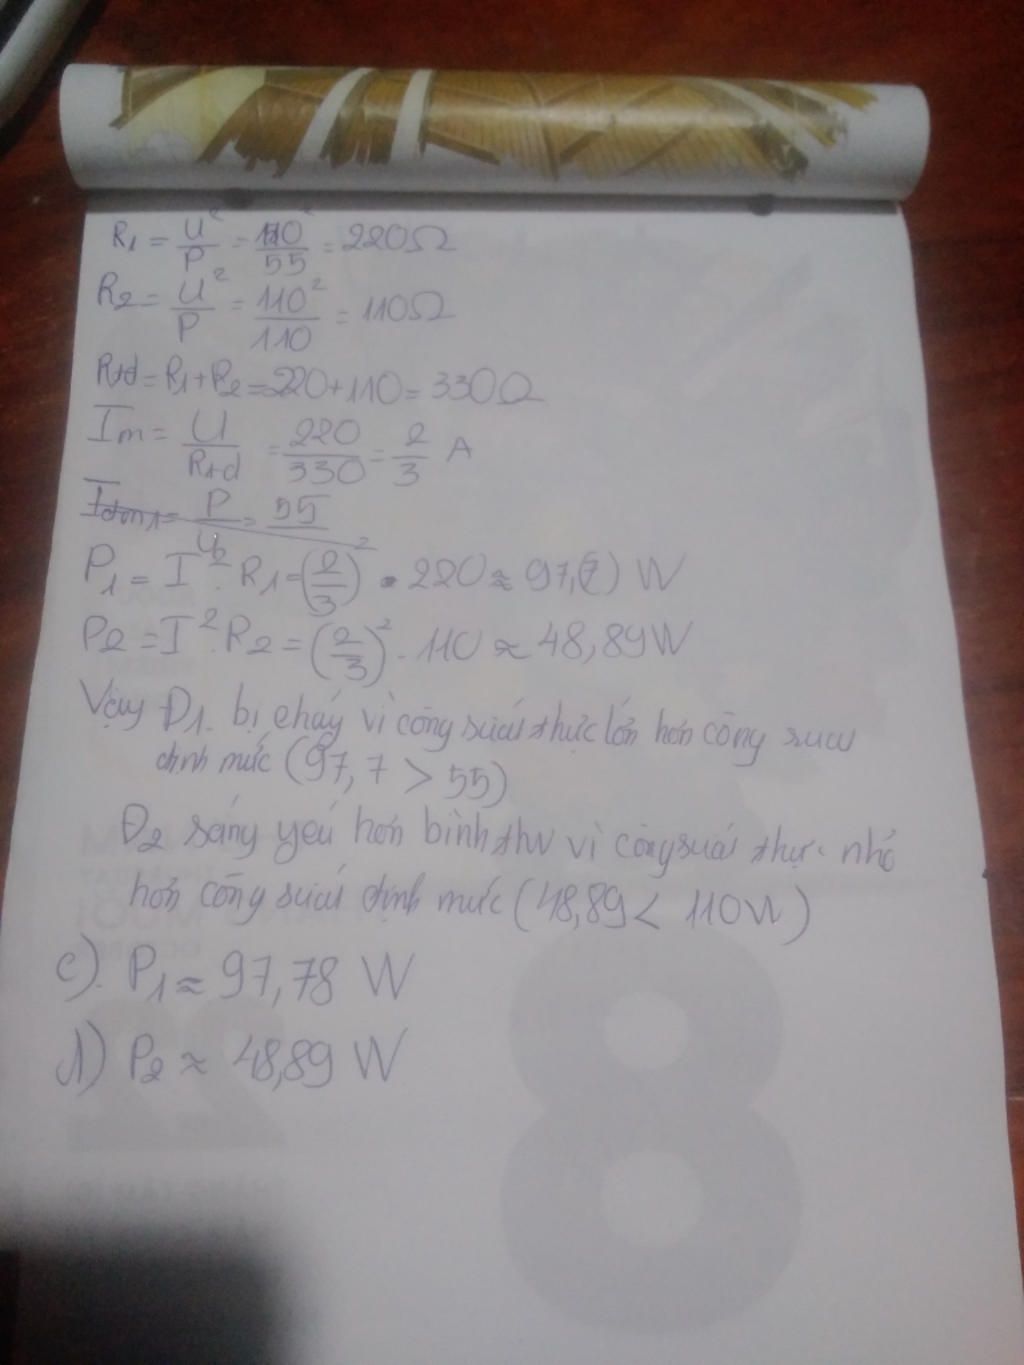 R1 = U²/P = 110²/55 = 220Ω
R2 = U²/P = 110²/110 = 110Ω
Rtđ = R1 + R2 = 220 + 110 = 330Ω
Im = U/Rtđ = 220/330 = 2/3 A
Iđm1 = P/U = 55
P1 = I². R1 = (2/3)² . 220 ≈ 97,7 W
P2 = I². R2 = (2/3)² . 110 ≈ 48,89W
Vậy Đ1 bị cháy vì công suất thực lớn hơn công suất
định mức (97,7 > 55)
Đ2 sáng yếu hơn bình thw vì công suất thực nhỏ
hơn công suất định mức (48,89 < 110W)
c). P1 ≈ 97,78 W
P2 ≈ 48,89 W